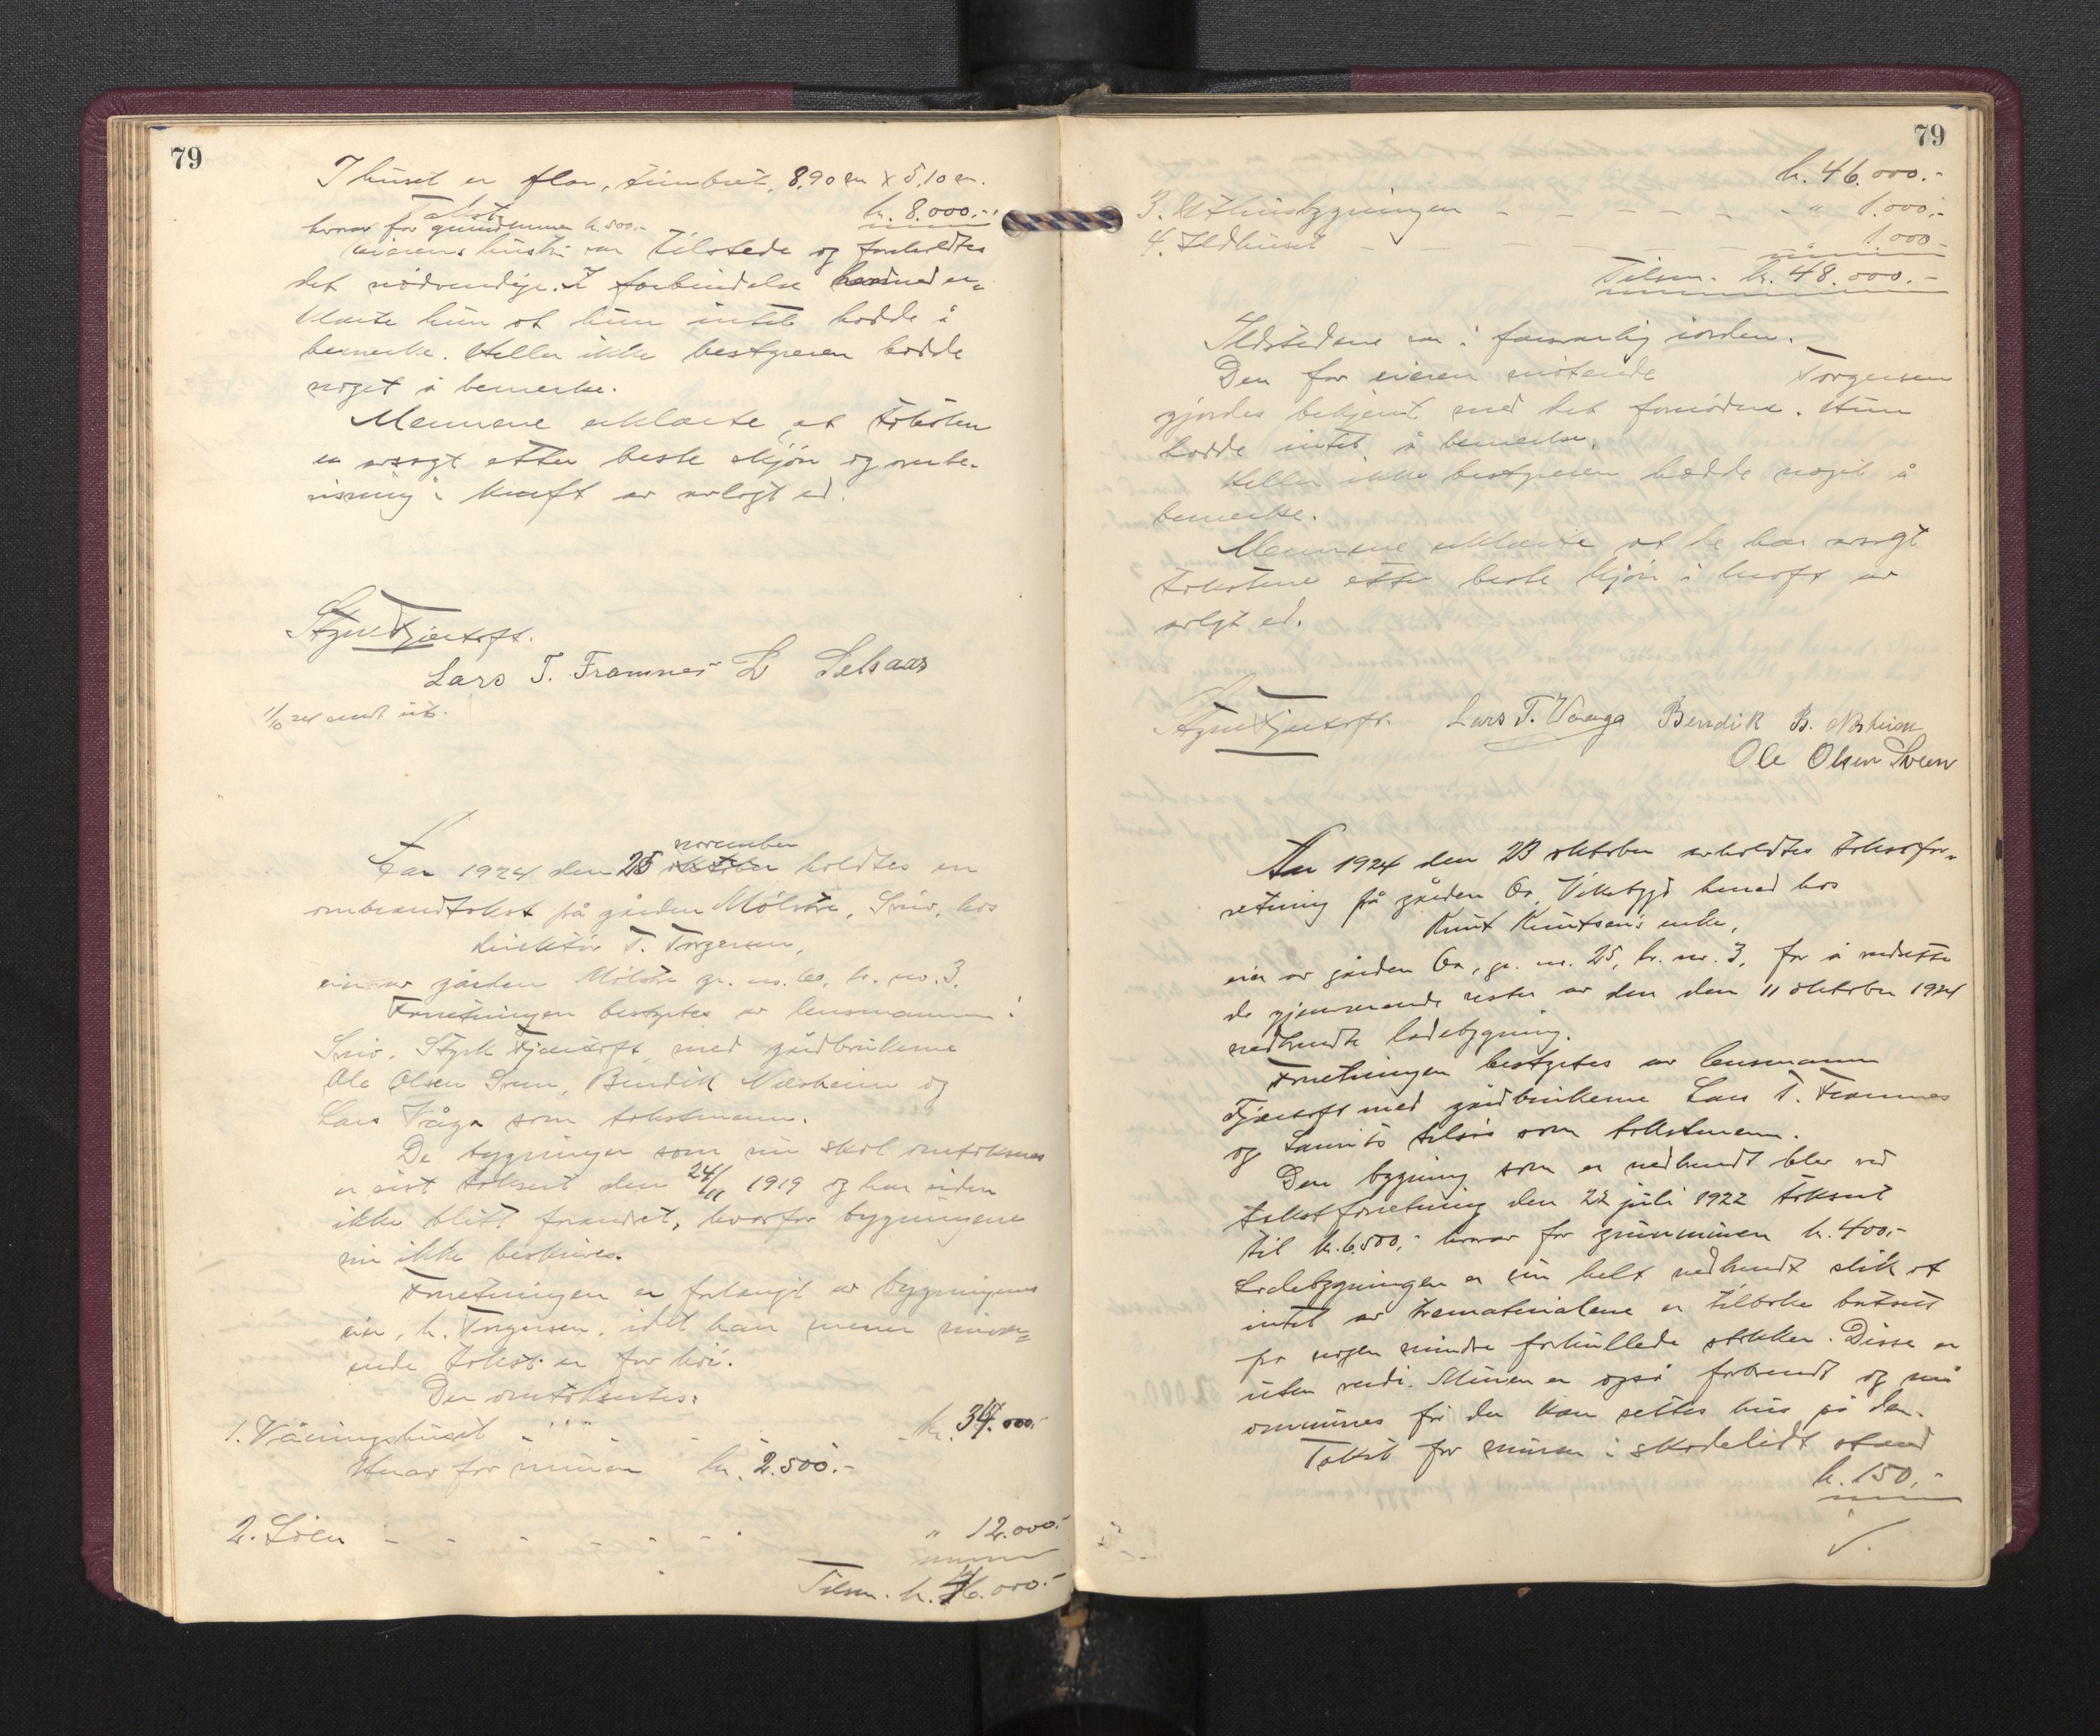 79
I huset er flor, tømbret, 8,90 m x 5,10 m.
Takst kr. 8.000.-
hvorav for grundmuren kr. 500.-
Eierens hustru var tilstede og foreholdtes
det nødvendige. I forbindelse hermed er-
klærte hun at hun intet hadde å
bemerke. Heller ikke bestyreren hadde
noget å bemerke.
Mennene erklærte at taksten
er avsagt etter beste skjøn og overbe-
visning i kraft av avlagt ed.
Styrk Fjærtoft.
Lars T. Framnes L Selsaas
1/10 24 sendt utb.
Aar 1924 den 25 november holdtes en
ombrandtakst på gården Mølstre, Sveio, hos
direktør T. Torgersen,
eier av gården Mølstre gr. nr. 60, br. no. 3.
Forretningen bestyrtes av lensmannen i
Sveio, Styrk Fjærtoft, med gårdbrukerne
Ole Olsen Sveen, Bendik Næsheim og
Lars Våga som takstmenn.
De bygninger som nu skal omtakseres
er sist taksert den 24/11 1919 og har siden
ikke blitt forandret, hvorfor bygningene
nu ikke beskrives.
Forretningen er forlangt av bygningenes
eier, h. Torgersen, idet han mener nuvær-
ende takst er for høi.
Der omtaksertes:
1. Våningshuset - - - - kr. 34.000.-
Hvorav for muren kr. 2.500.-
2. Løen - - - - - - " 12.000.-
Tilsm. kr. 46.000.-
79
kr. 46.000.-
3. Uthusbygningen - - - - - - " 1.000.-
4. Ildhuset - - - " 1.000.-
Tilsm. kr. 48.000.-
Ildstedene var i forsvarlig orden.
Den for eieren møtende Torgersen
gjordes bekjent med det fornødne. Hun
hadde intet å bemerke.
Heller ikke bestyreren hadde noget å
bemerke.
Mennene erklærte at de har avsagt
takstene etter beste skjøn i kraft av
avlagt ed.
Styrk Fjærtoft. Lars T. Vaaga Bendik B. Næsheim
Ole Olsen Sveen
Aar 1924 den 23 oktober avholdtes takstfor-
retning på gården Ør, Vikebygd herred hos
Knut Knutsen's enke,
eier av gården Ør, gr. nr. 25, br. nr. 3, for å verdsette
de gjenværende rester av den den 11 oktober 1924
nedbrendte ladebygning.
Forretningen bestyrtes av lensmann
Fjærtoft med gårdbrukerne Lars T. Framnes
og Laurits Selsås som takstmenn.
Den bygning som er nedbrendt blev ved
takstforretning den 22 juli 1922 taksert
til kr. 6.500,- hvorav for grunnmuren kr. 400.-
Ladebygningen er nu helt nedbrendt slik at
intet av trematerialene er tilbake bortsett
fra nogen mindre forkullede stokker. Disse er
uten verdi. Muren er også forbrendt og må
ommures før der kan settes hus på den.
Takst for muren i skadelidt stand
kr. 150.-